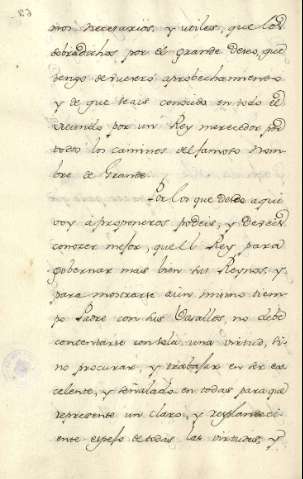 83
mos necesarios, y utiles, que los
sobredichos, por el grande deseo, que
tengo de vuestro aprobechamiento
y de que seais conocido en todo el
Mundo por un Rey merecedor por
todos los caminos del famoso Nom-
bre de Grande.
Por los que desde aqui
voy à proponeros podeis, y deveis
conocer mejor, que el Rey para
gobernar mas bien sus Reynos, y
para mostrarse aùn mismo tiem-
po Padre con sus Vasallos, no debe
contentarse con sola una virtud, si
no procurar, y trabajar en ser ex-
celente, y señalado en todas para que
represente un claro, y resplandeci-
ente espejo de todas las virtudes, y